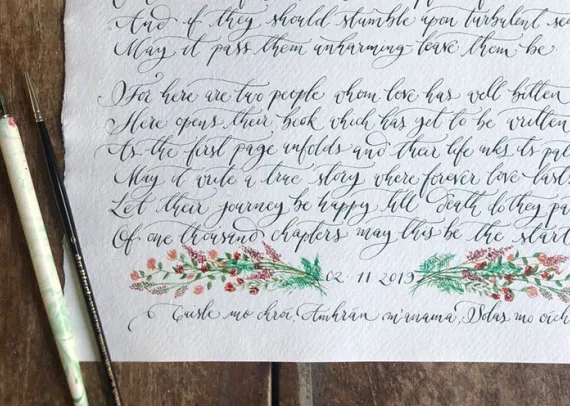 And if they should stumble upon turbulent
May it pass them unharming leave them be
For here are two people whom love has well bitten
Here opens their book which has yet to be written
As the first page unfolds and their life inks its
May it write a true story where forever love lasts
Let their journey be happy till death do they
Of one thousand chapters may this be the start
02 11 2019
Cuisle mo chroí Amhrán m'anama, Solas mo